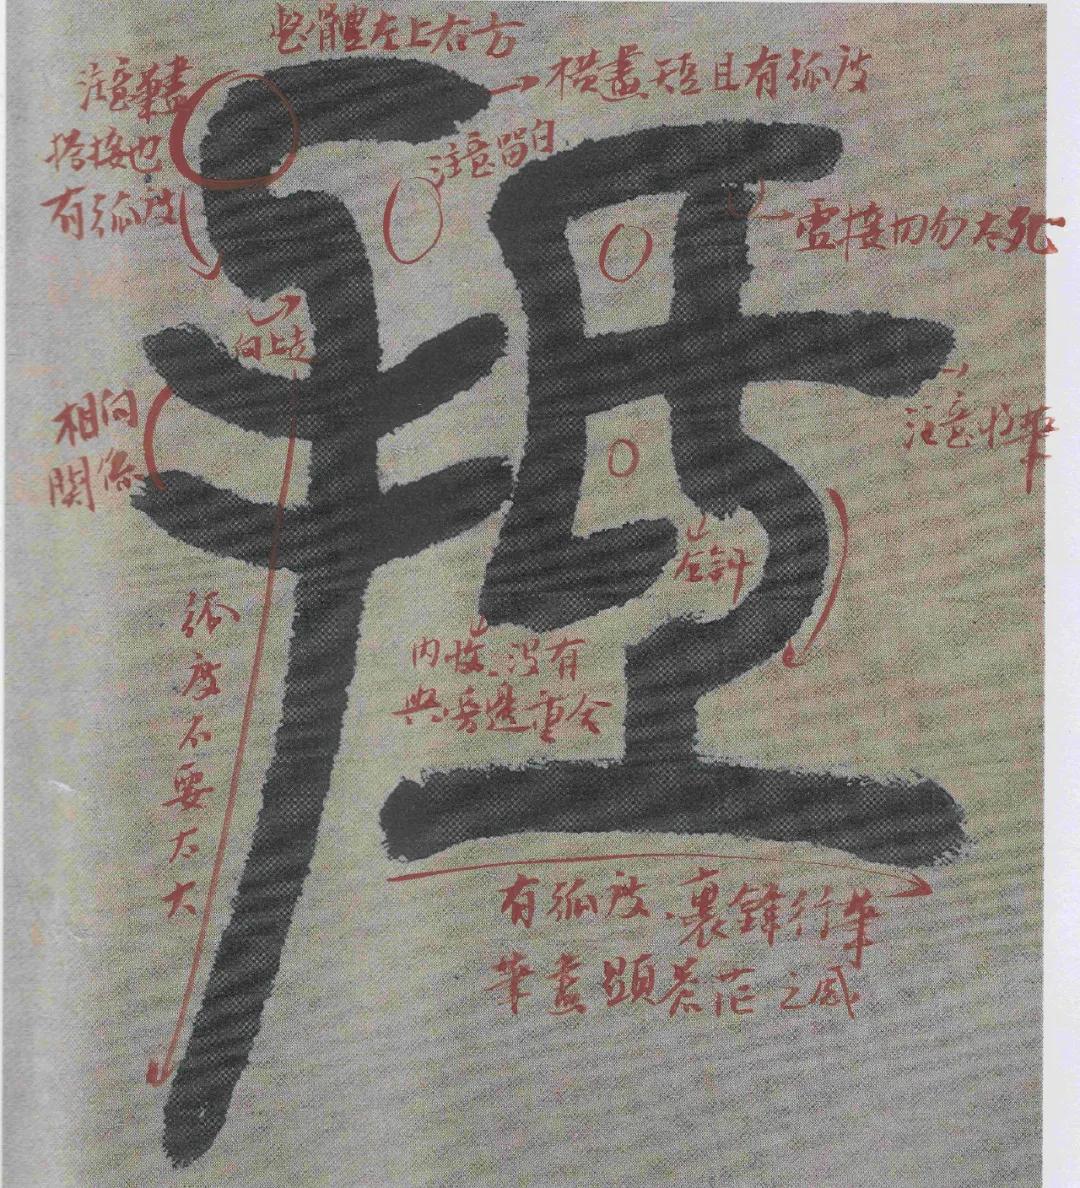 整體左上右方
注意筆畫
搭接也
有弧度
橫畫短且有弧度
注意留白
虛接切勿太死
向上走
相向
關係
注意收筆
左斜
內收、沒有
與旁邊重合
弧度不要太大
有弧度、裹鋒行筆
筆畫顯蒼茫之感